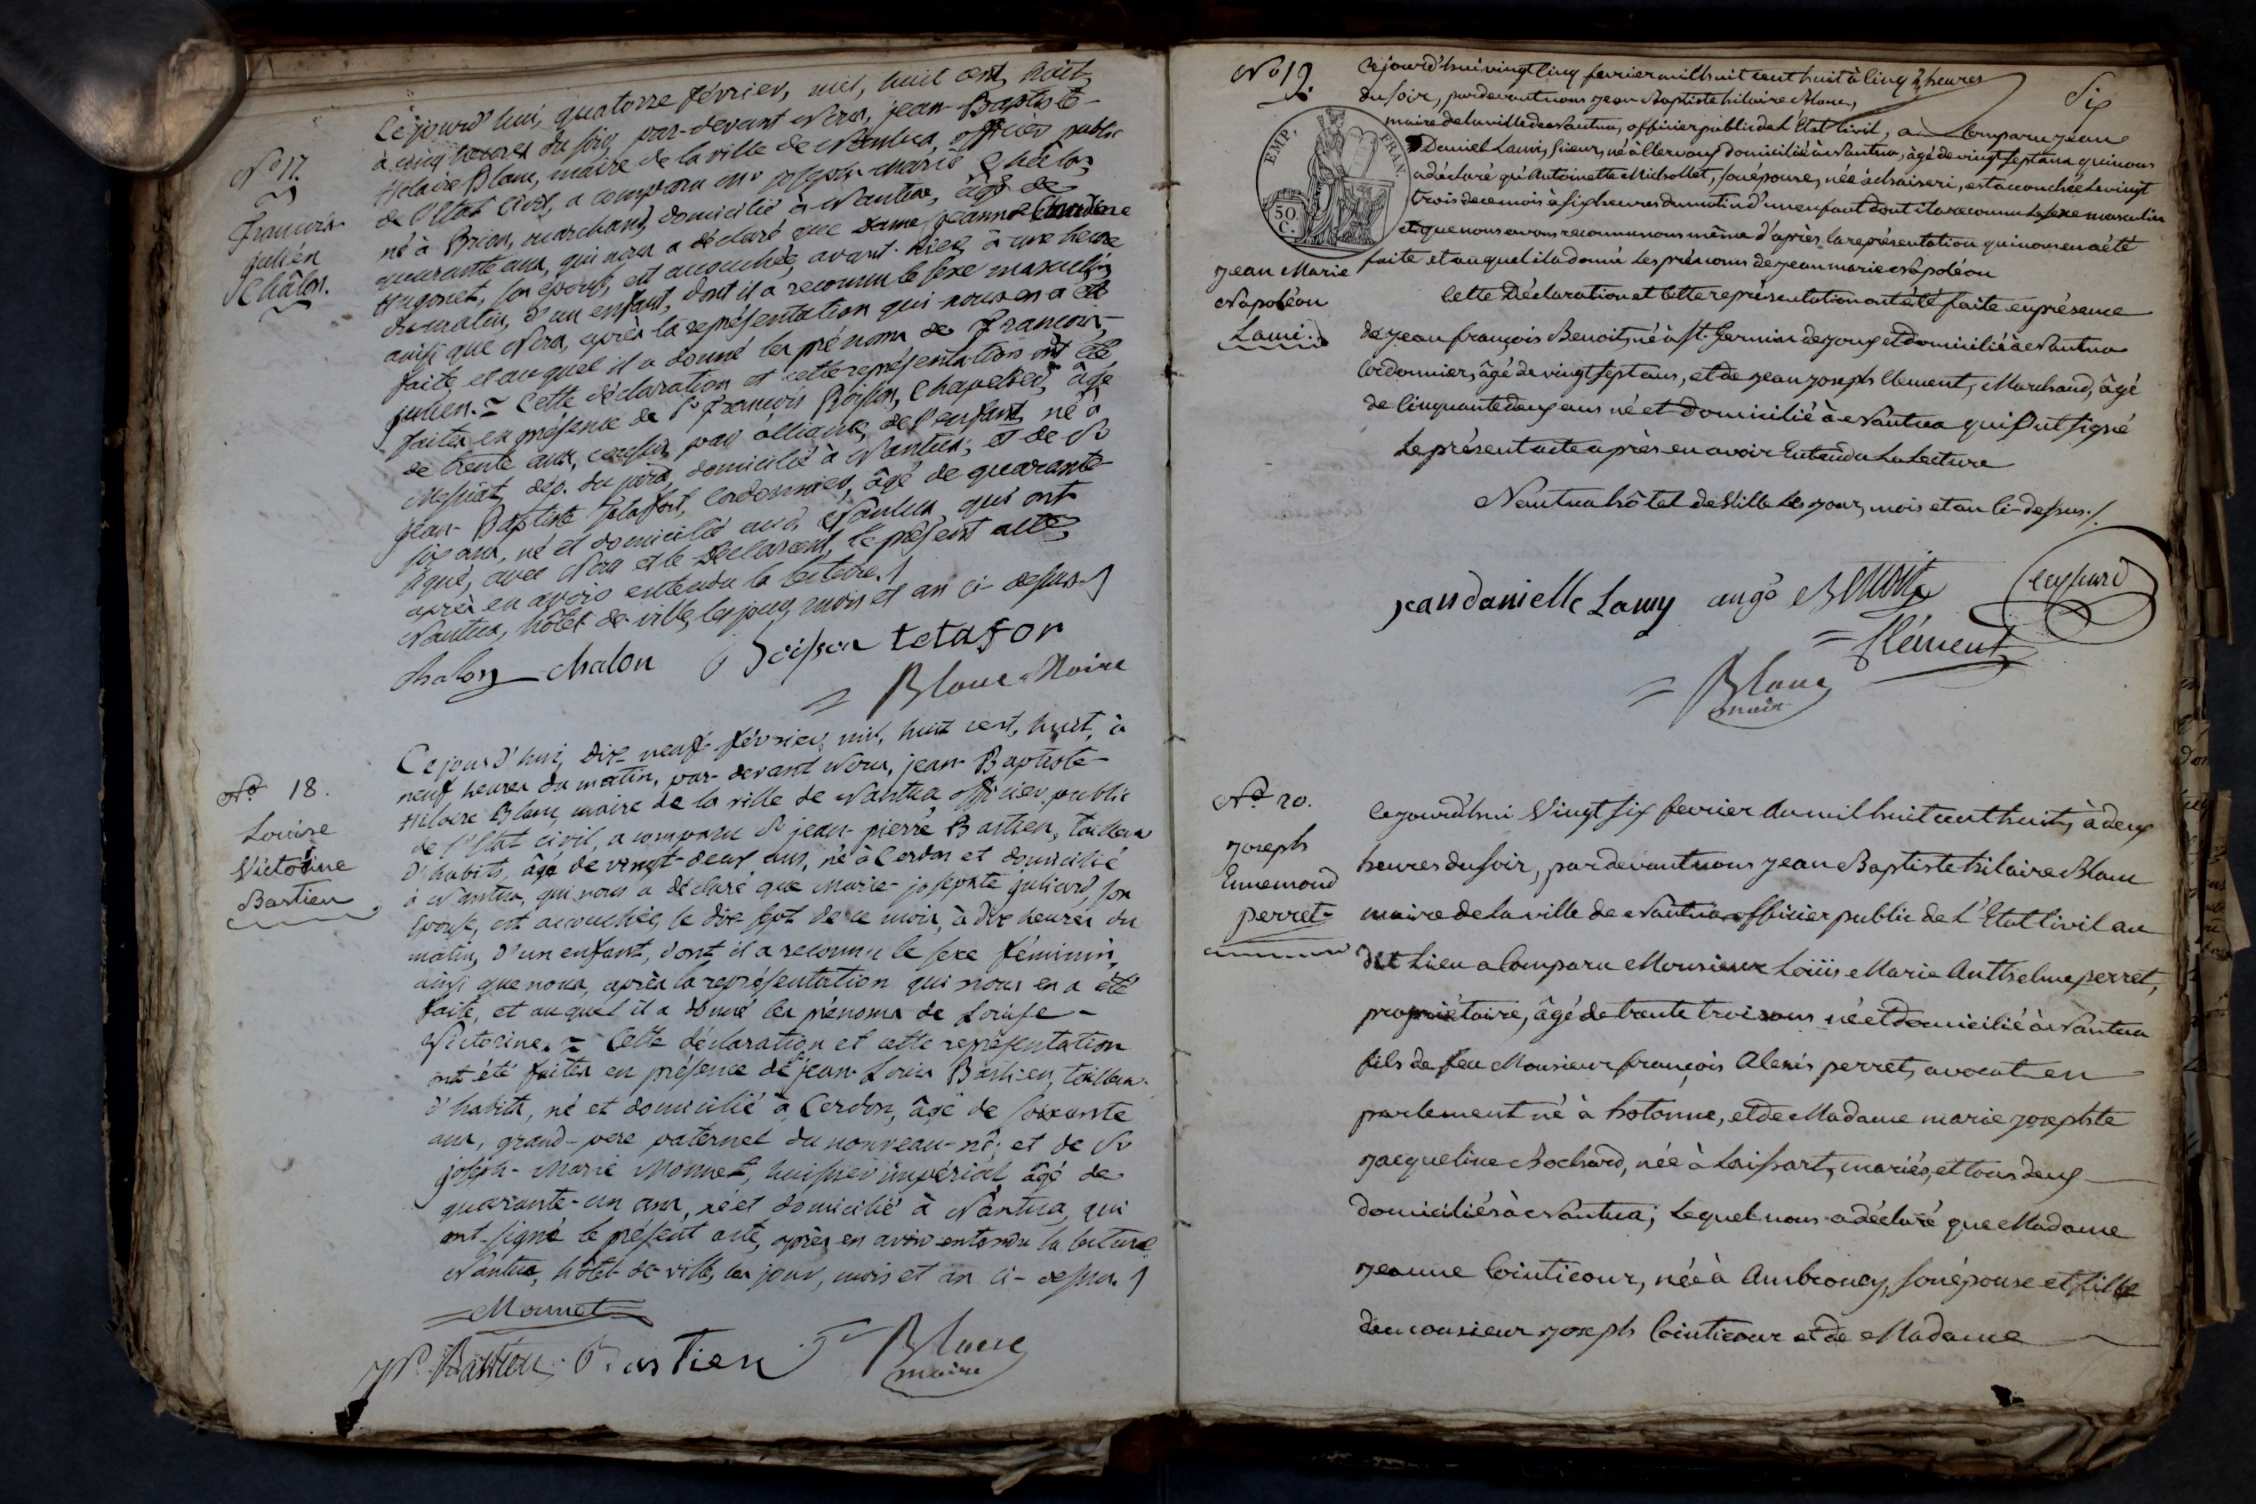 No 17.
François
julien
Châlon.
Cejourd'hui, quatorze février, mil, huit cent, huit,
à cinq heures du soir, par-devant Nous, jean-Baptiste-
Hilaire Blanc, maire de la ville de Nantua, officier public
de l'Etat civil, a comparu Mr joseph-Marie Châlon
né à Brion, marchand, domicilié à Nantua, âgé de
quarante ans, qui nous a déclaré que Dame jeanne Claudine
Hugonet, son épouse, est accouchée, avant-hier à une heure
du matin, d'un enfant, dont il a reconnu le sexe masculin
ainsi que Nous, après la représentation qui nous en a été
faite, et auquel il a donné les prénoms de François-
julien. = Cette déclaration et cette représentation ont été
faites en présence de Sr François Boisson, Chapelier, âgé
de trente ans, cousin par alliance de l'enfant, né à
Messiat, dép. du jura, domicilié à Nantua; et de Sr
jean-Baptiste Tetafort, Cordonnier, âgé de quarante-
six ans, né et domicilié au dit Nantua, qui ont
signé, avec Nous et le Déclarant, le présent acte,
après en avoir entendu la lecture.
Nantua, hôtel de ville, les jour, mois et an ci-dessus.
Chalon chalon Boisson tetafor
= Blanc Maire
No 18.
Louise
Victorine
Bastien
Cejourd'hui, dix-neuf février, mil, huit cent, huit, à
neuf heures du matin, par-devant Nous, jean-Baptiste-
Hilaire Blanc, maire de la ville de Nantua officier public
de l'Etat civil, a comparu Sr jean-pierre Bastien, tailleur
d'habits, âgé de vingt-deux ans, né à Cerdon et domicilié
à Nantua, qui nous a déclaré que Marie-josephte juliard, son
épouse, est accouchée, le dix sept de ce mois, à dix heures du
matin, d'un enfant, dont il a reconnu le sexe féminin,
ainsi que nous, après la représentation qui nous en a été
faite, et auquel il a donné les prénoms de Louise-
Victorine. = Cette déclaration et cette représentation
ont été faites en présence de jean-Louis Bastien, tailleur
d'habits, né et domicilié à Cerdon, âgé de soixante
ans, grand-pere paternel du nouveau-né; et de Sr
joseph-Marie Monnet, huissier impérial, âgé de
quarante-un ans, né et domicilié à Nantua, qui
ont signé le présent acte, après en avoir entendu la lecture
Nantua, hôtel de ville, les jour, mois et an ci-dessus.
Monnet
JP. Bastien Bastien = Blanc
maire
No 19.
Six
EMP. FRAN.
50 C.
Jean Marie
Napoléon
Lami.
Cejourd'hui vingt cinq fevrier mil huit cent huit à cinq heures
du soir, pardevant nous Jean Baptiste hilaire Blanc,
maire de la ville de Nantua, officier public de l'Etat Civil, a Comparu Jean
Daniel Lami, scieur, né à Clervans domicilié à Nantua, âgé de vingt sept ans qui nous
a déclaré qu'Antoinette Michollet, son épouse, née à chaiseri, est accouchée le vingt
trois de ce mois à six heures du matin d'un enfant dont il a reconnu le sexe masculin
et que nous avons reconnu nous même d'après la représentation qui nous en a été
faite et auquel il a donné les prénoms de Jean marie Napoléon
Cette Déclaration et Cette représentation ont été faite en présence
de Jean françois Benoit, né à St. Germain de Joux et domicilié à Nantua
Cordonnier, âgé de vingt sept ans, et de Jean Joseph Clement, Marchand, âgé
de Cinquante deux ans né et domicilié à Nantua qui ont signé
Le présent acte après en avoir Entendu La Lecture
Nantua hôtel de Ville Les Jour, mois et an Ci-dessus.
jean danielle Lamy Benoit
Clément
= Blanc
maire
No 20.
Joseph
Ennemond
perret
Cejourd'hui Vingt six fevrier an mil huit cent huit, à deux
heures du soir, pardevant nous Jean Baptiste hilaire Blanc
maire de la ville de Nantua officier public de L'Etat Civil au
dit Lieu a Comparu Monsieur Loüis Marie Anthelme perret,
propriétaire, âgé de trente trois ans né et domicilié à Nantua
fils de feu Monsieur françois Alexis perret, avocat en
parlement né à hotonne, et de Madame marie Josephte
Jacqueline Bochard, née à Laissart, mariés, et tous deux
domiciliés à Nantua; Lequel nous a déclaré que Madame
Jeanne Cointicour, née à Ambronay, son épouse et fille
de monsieur Joseph Cointicour et de Madame